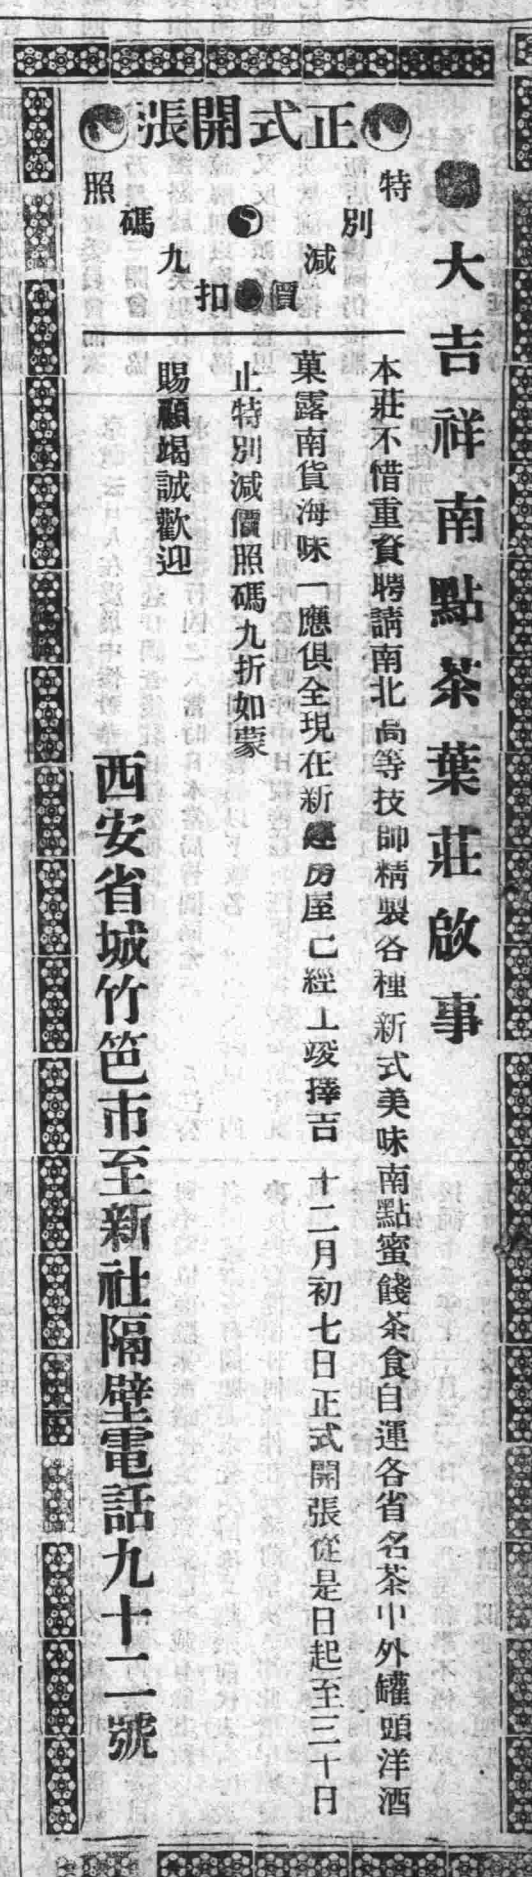 大吉祥南點茶葉莊啟事
正式開張
特別減價
照碼九扣
本莊不惜重資聘請南北高等技師精製各種新式美味南點蜜餞茶食自運各省名茶中外罐頭洋酒
菓露南貨海味一應俱全現在新建房屋已經工竣擇吉十二月初七日正式開張從是日起至三十日
止特別減價照碼九折如蒙
賜顧竭誠歡迎
西安省城竹笆市至新社隔壁電話九十二號